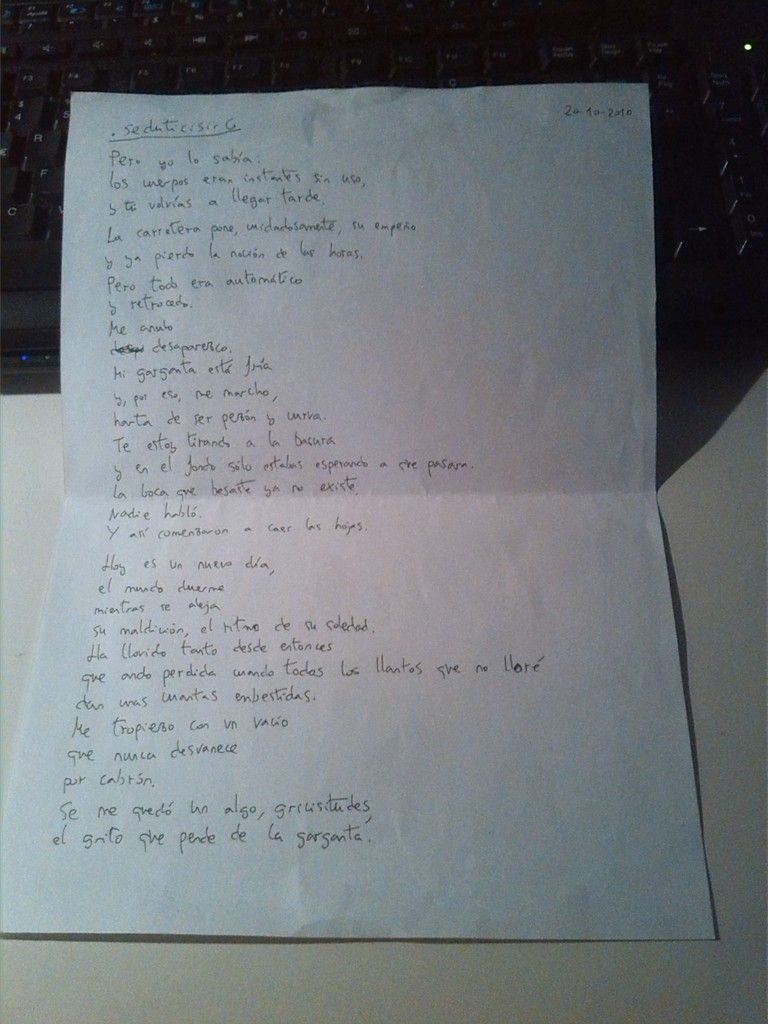 20-10-2010
Pero yo lo sabía:
los cuerpos eran instantes sin uso,
y tú volvías a llegar tarde.
La carretera pone, cuidadosamente, su empeño
y ya pierdo la noción de las horas.
Pero todo era automático
y retrocedo.
Me anulo
desaparezco.
Mi garganta está fría
y, por eso, me marcho,
harta de ser pezón y curva.
Te estoy tirando a la basura
y en el fondo sólo estabas esperando a que pasara.
La boca que besaste ya no existe.
Nadie habló.
Y así comenzaron a caer las hojas.
Hoy es un nuevo día,
el mundo duerme
mientras se aleja
su maldición, el ritmo de su soledad.
Ha llovido tanto desde entonces
que ando perdida cuando todos los llantos que no lloré
dan unas cuantas embestidas.
Me tropiezo con un vacío
que nunca desvanece
por cabrón.
Se me quedó un algo, gricisitudes,
el grito que pende de la garganta.